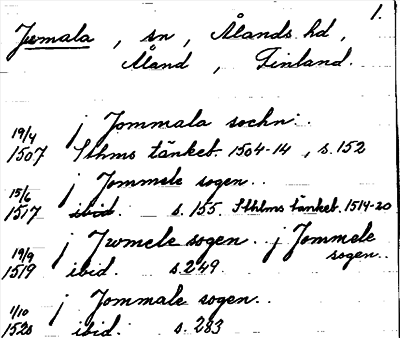 1.
Jumala, sn, Ålands hd,
Åland, Finland.
19/4 j Jommala sochn..
1507 Sthms tänkeb. 1504-14, s. 152
15/6 j Jommele sogen..
1517 ibid. s. 155. Sthlms tänkeb. 1514-20
19/9 j Jwmele sogen. j Jommele
sogen..
1519 ibid. s. 249.
1/10 j Jommale sogen..
1520 ibid. s. 283